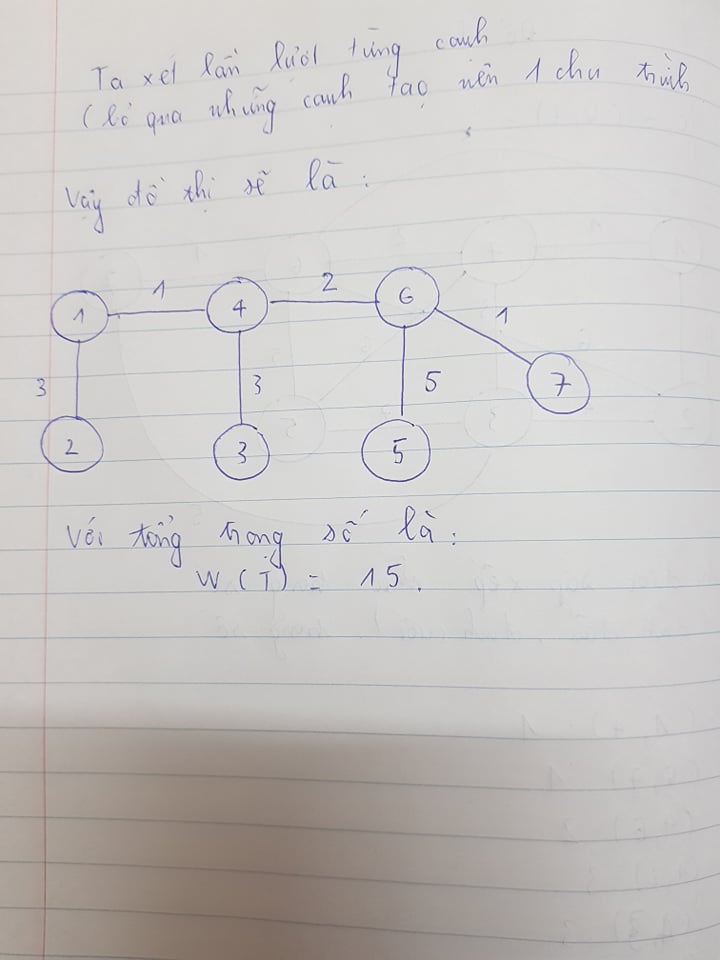 Ta xét lần lượt từng cạnh
(bỏ qua những cạnh tạo nên 1 chu trình
Vậy đồ thị sẽ là:
1 2
1 4 6 1
3 3 5 7
2 3 5
Với tổng trọng số là:
W(T) = 15.